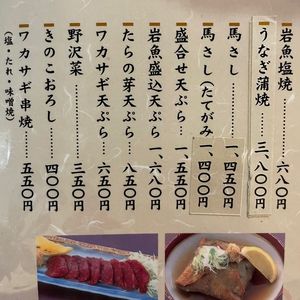 岩魚塩焼………六八〇円
うなぎ蒲焼……三、八〇〇円
馬さし…………一、四五〇円
馬さし（たてがみ）一、四〇〇円
盛合せ天ぷら…一、五五〇円
岩魚盛込天ぷら一、六八〇円
たらの芽天ぷら…八五〇円
ワカサギ天ぷら…六五〇円
野沢菜…………三五〇円
きのこおろし……四〇〇円
ワカサギ串焼……五五〇円
（塩・たれ・味噌焼）